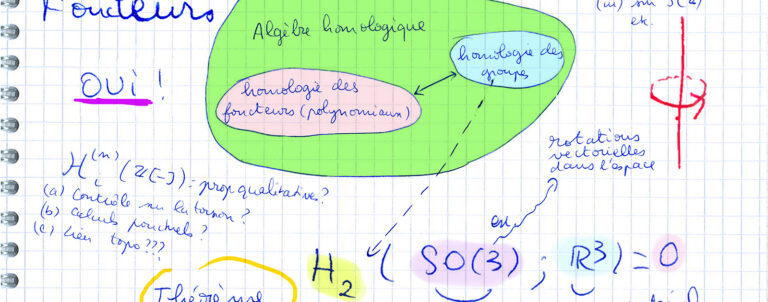 Foncteurs
OUI !
Algèbre homologique
homologie des
groupes
homologie des
foncteurs (polynomiaux)
etc.
rotations
vectorielles
dans l'espace
: prop qualitatives ?
(a) Contrôle sur la torsion ?
(b) Calculs ponctuels ?
(c) Lien topo ???
H₂ ( SO(3) ; ℝ³ ) = 0
Théorème